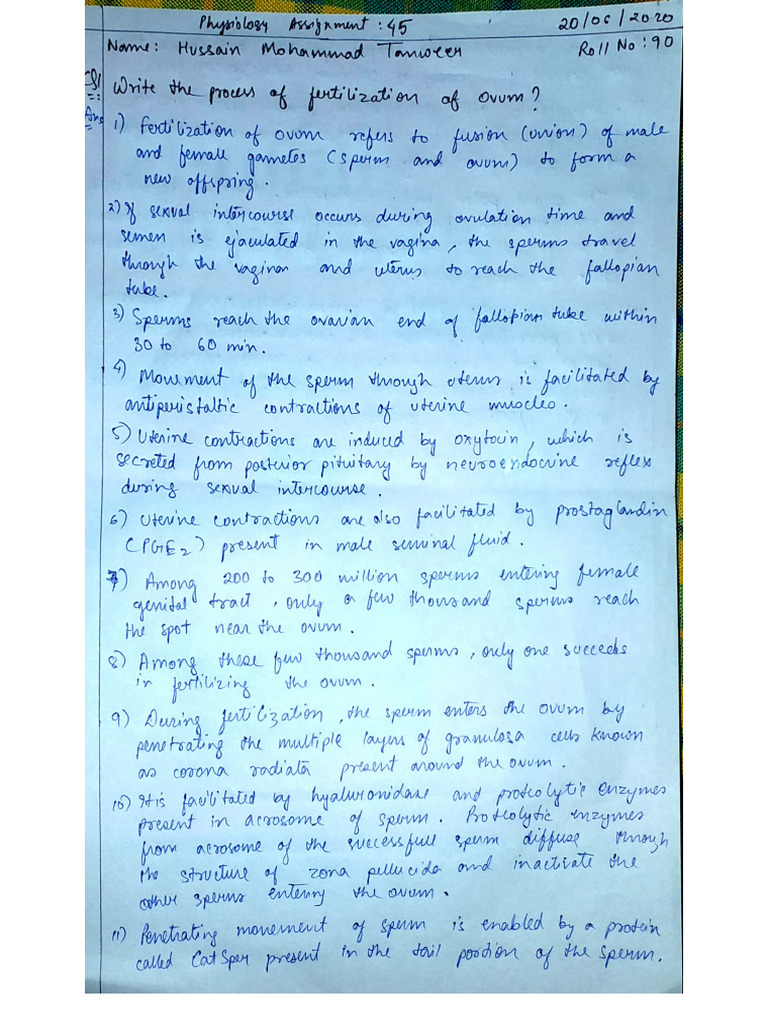 Physiology Assignment : 45 20/06/2020
Name: Hussain Mohammad Tanweer Roll No : 90
Q1 Write the process of fertilization of ovum?
Ans 1) Fertilization of ovum refers to fusion (union) of male
and female gametes (sperm and ovum) to form a
new offspring.
2) If sexual intercourse occurs during ovulation time and
semen is ejaculated in the vagina, the sperms travel
through the vaginan and uterus to reach the fallopian
tube.
3) Sperms reach the ovarian end of fallopian tube within
30 to 60 min.
4) Movement of the sperm through uterus is facilitated by
antiperistaltic contractions of uterine muscles.
5) Uterine contractions are induced by oxytocin, which is
secreted from posterior pituitary by neuroendocrine reflex
during sexual intercourse.
6) Uterine contractions are also facilitated by prostaglandin
(PGE2) present in male seminal fluid.
7) Among 200 to 300 million sperms entering female
genital tract, only a few thousand sperms reach
the spot near the ovum.
8) Among these few thousand sperms, only one succeeds
in fertilizing the ovum.
9) During fertilization, the sperm enters the ovum by
penetrating the multiple layers of granulosa cells known
as corona radiata present around the ovum.
10) It is facilitated by hyaluronidase and proteolytic enzymes
present in acrosome of sperm. Proteolytic enzymes
from acrosome of the successfull sperm diffuse through
the structure of zona pellucida and inactivate the
other sperms entering the ovum.
11) Penetrating movement of sperm is enabled by a protein
called CatSper present in the tail portion of the sperm.